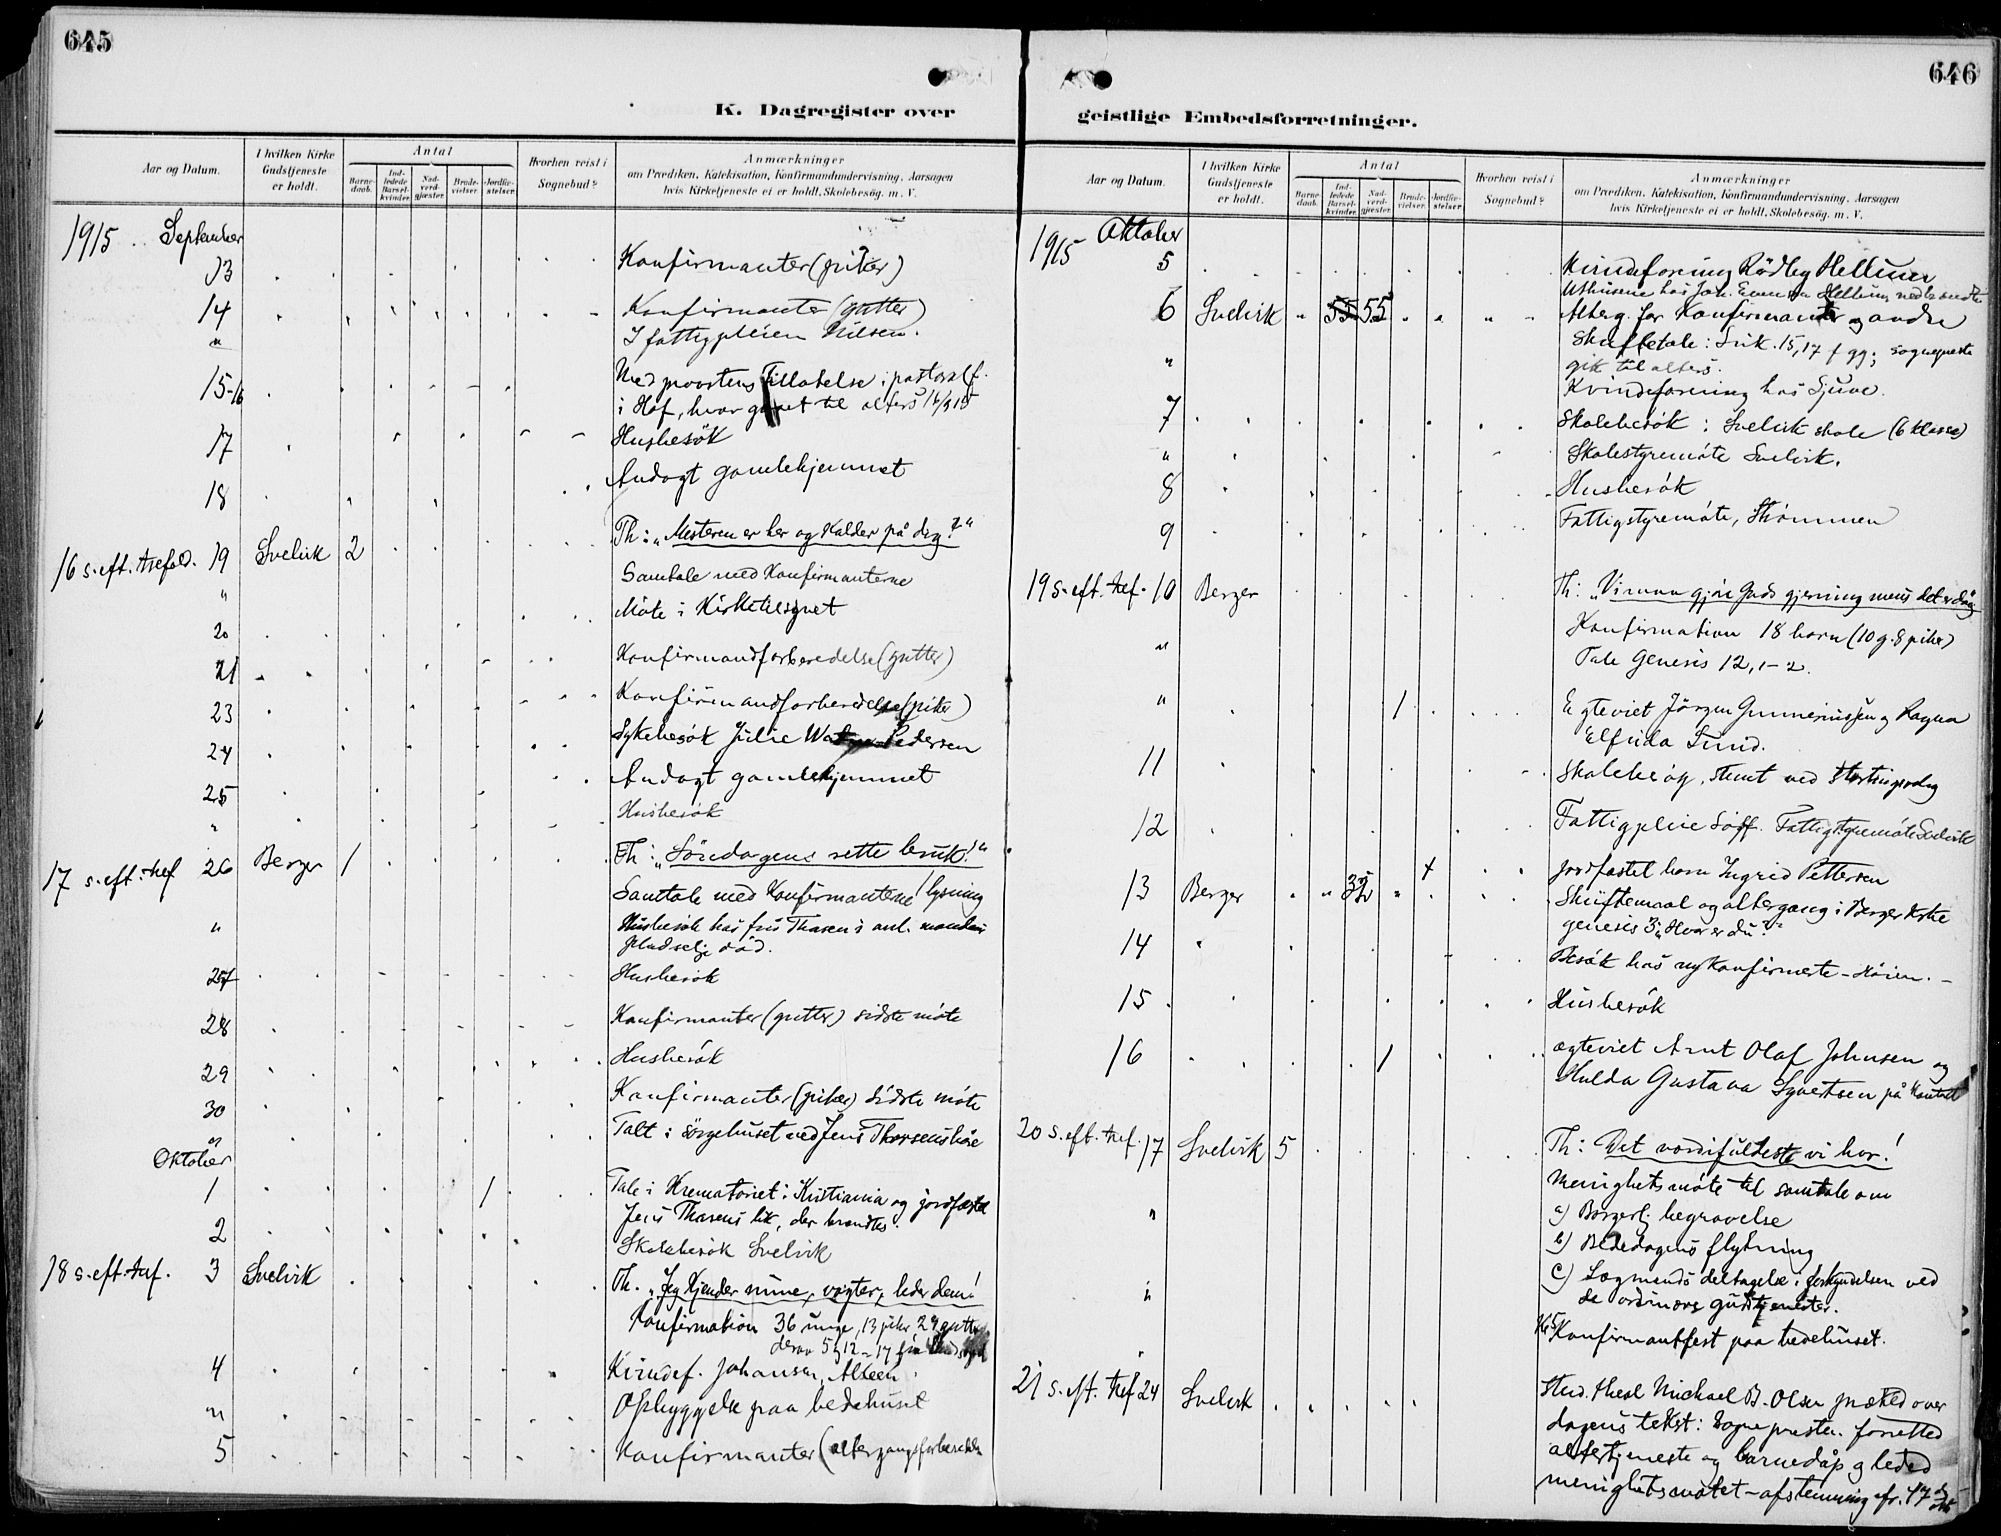 645
K. Dagregister over
Aar og Datum.
I hvilken Kirke Gudstjeneste er holdt.
Antal
Barnedaab.
Indledede Barselkvinder.
Nadverdgjæster.
Brudevielser.
Jordfæstelser.
Hvorhen reist i Sognebud?
Anmærkninger
om Prædiken, Katekisation, Konfirmandundervisning, Aarsagen
hvis Kirketjeneste ei er holdt, Skolebesøg. m. V.
1915 September
13 Konfirmanter (piker)
14 Konfirmanter (gutter)
" I fattigpleien Nilsen.
15-16 Med provstens Tillatelse i pastoralf.
i Hof, hvor gaaet til alters 16/9 15
17 Husbesök
18 Andagt gamlehjemmet
16 s. eft. trefold. 19 Svelvik 2 Th: "Mesteren er her og kalder på dig!"
" Samtale med Konfirmanterne
20 Møte i Kirketilsynet
21 Konfirmandforberedelse (gutter)
23 Konfirmandforberedelse (piker)
24 Sykebesök Julie Pedersen
25 Andagt gamlehjemmet
" Husbesök
17 s. eft. tref 26 Berger 1 Th: "Söndagens rette bruk!"
Samtale med Konfirmanterne lysning
" Husbesök hos fru Thorsen i anl. mandens
pludselige död.
27 Husbesök
28 Konfirmanter (gutter) sidste möte
29 Husbesök
30 Konfirmanter (piker) sidste möte
" Talt i sörgehuset ved Jens Thorsens båre
Oktober
1 1 Tale i Krematoriet i Kristiania og jordfæstet
Jens Thorsens lik, der brændtes
2 Skolebesök Svelvik
18 s. eft. tref. 3 Svelvik Th. "Jeg kjender mine, vogter, leder dem!
Konfirmation 36 unge, 13 piker 23 gutter
4 Kvindef. Johansen,
" Opbyggelse paa bedehuset
5 Konfirmanter (altergangsforberedelse
646
geistlige Embedsforretninger.
Aar og Datum.
I hvilken Kirke Gudstjeneste er holdt.
Antal
Barnedaab.
Indledede Barselkvinder.
Nadverdgjæster.
Brudevielser.
Jordfæstelser.
Hvorhen reist i Sognebud?
Anmærkninger
om Prædiken, Katekisation, Konfirmandundervisning, Aarsagen
hvis Kirketjeneste ei er holdt, Skolebesög. m. V.
1915 Oktober
5 Kvindeforening Rødby Hellum
6 Svelvik " 55 55 Alterg. for Konfirmanter og andre
Skriftetale: Luk. 15,17 f gg; sogneprest
gik til alters.
" Kvindeforening hos Sjuve.
7 Skolebesök i Svelvik skole (6 klasse)
" Skolestyremöte Svelvik.
8 Husbesök
9 Fattigstyremöte, Strömmen
19 s. eft. tref. 10 Berger Th: "Vi maa gjöre Guds gjerning mens det er dag"
" Konfirmation 18 barn (10 g. 8 piker)
Tale Genesis 12, 1-2.
" 1 Egteviet Jörgen Gunneriussen og Ragna
Elfrida Lund.
11 Skolebesög, stemt ved Stortingsvalg
12 Fattigpleie Fattigstyremöte Svelvik
13 Berger " " 32 " + Jordfæstet barn Ingrid Pettersen
Skriftemaal og altergang i Berger kirke
genesis 3 "Hvor er du?"
14 Besök hos nykonfirmerte - Höien. -
15 Husbesök
16 1 ægteviet Arnt Olaf Johnsen og
Hulda Gustava Syvertsen på
20 s. eft. tref. 17 Svelvik 5 Th: Det værdifuldeste vi har!
Menighetsmöte til samtale om
" a) Borgerlig begravelse
b) Bededagens flytning
c) Lægmands deltagelse i forkyndelsen ved
" de ordinære gudstjenester.
Kl 5 Konfirmantfest paa bedehuset.
21 s. eft. tref 24 Svelvik Stud. theol Michael B. Olsen prækked over
dagens tekst: Sognepresten forretted
altertjeneste og barnedåp og leded
menighetsmötet - afstemning efr. 17de okt